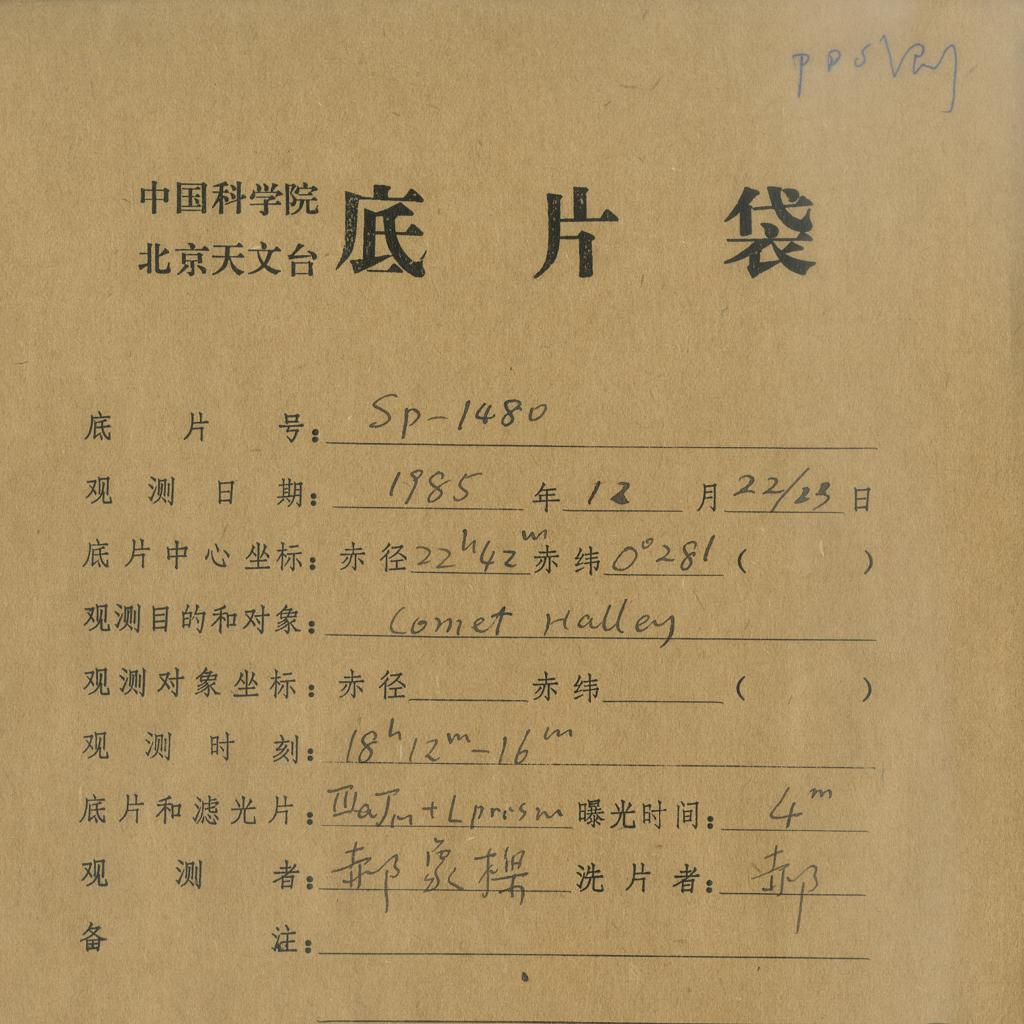 PDS
中国科学院
北京天文台
底片袋
底片号: Sp-1480
观测日期: 1985 年 12 月 22/23 日
底片中心坐标: 赤径 22h42m 赤纬 0°281 ( )
观测目的和对象: Comet Halley
观测对象坐标: 赤径 赤纬 ( )
观测时刻: 18h12m-16m
底片和滤光片: IIIaJm + L prism 曝光时间: 4m
观测者: 郝象樑 洗片者: 郝
备注: